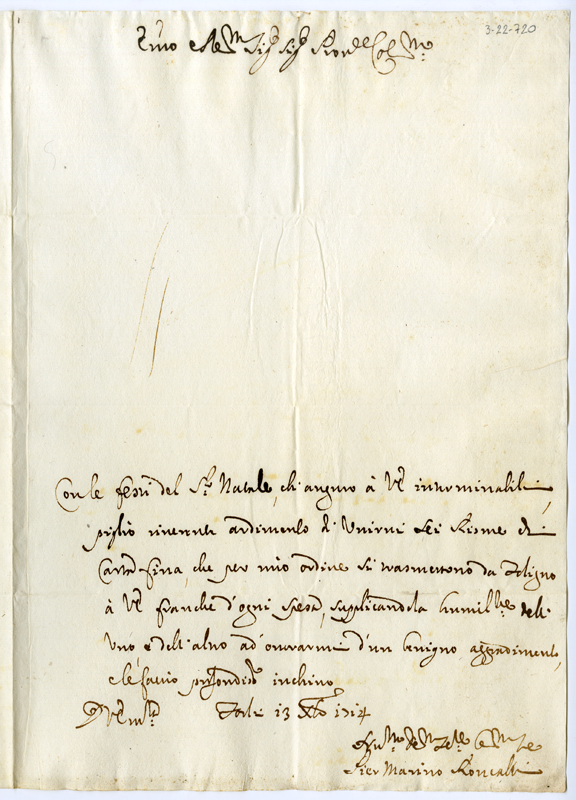 3-22-720
Sig.r Sig.r Pron.e Col.mo
Con le feste del S. Natale, ch'auguro à VS interminabili,
piglio riverente ardimento d'Unirvi sei Risme di
Carta fina, che per mio ordine si trasmettono da Foligno
à VS franche d'ogni spesa, suplicandola humil.te dell'
uno e dell'altro ad'onorarmi d'un benigno aggradimento,
e le faccio profondis.o inchino
D VS Forlì 13 Xbre 1714
Pier Marino Roncalli